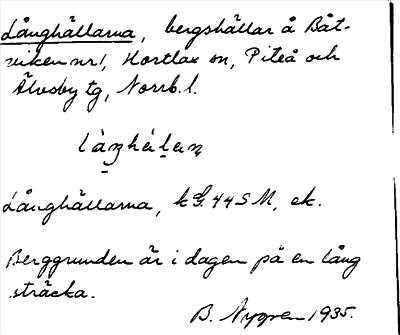 Långhällarna, bergshällar å Båt-
viken nr 1, Hortlax sn, Piteå och
Älvsby tg, Norrb. l.
Långhällarna, k G. 44 S M, ek.
Berggrunden är i dagen på en lång
sträcka.
B. Nygren 1935.